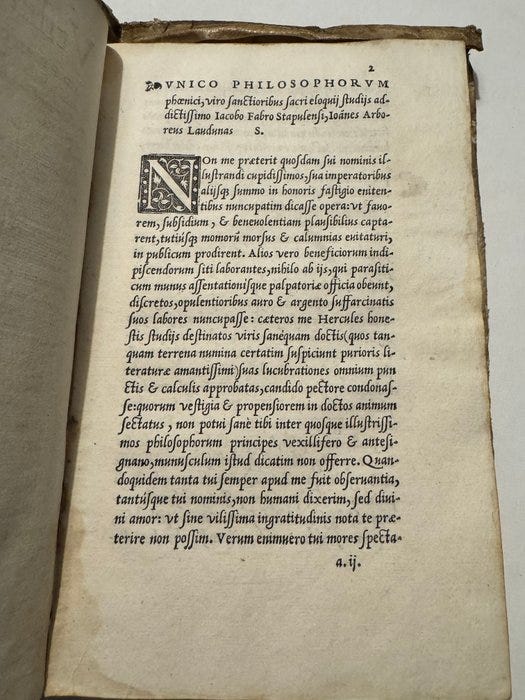 2
VNICO PHILOSOPHORVM
phœnici, viro sanctioribus sacri eloquij studijs ad-
dictissimo Iacobo Fabro Stapulensi, Ioānes Arbo
reus Laudunas S.
NOn me præterit quosdam sui nominis il-
lustrandi cupidissimos, sua imperatoribus
alijsq; summo in honoris fastigio eniten-
tibus nuncupatim dicasse opera: vt fauo-
rem, subsidium, & beneuolentiam plausibilius capta-
rent, tutiúsq; momorū morsus & calumnias euitaturi,
in publicum prodirent. Alios vero beneficiorum indi-
piscendorum siti laborantes, nihilo ab ijs, qui parasiti-
cum munus assentationisque palpatoriæ officia obeunt,
discretos, opulentioribus auro & argento suffarcinatis
suos labores nuncupasse: cæteros me Hercules hone-
stis studijs destinatos viris sanéquam doctis (quos tan-
quam terrena numina certatim suspiciunt purioris li-
teraturæ amantissimi) suas lucubrationes omnium pun
ctis & calculis approbatas, candido pectore condonas-
se: quorum vestigia & propensiorem in doctos animum
sectatus, non potui sanè tibi inter quosque illustrissi-
mos philosophorum principes vexillifero & antesi-
gnano, munusculum istud dicatim non offerre. Quan-
doquidem tanta tui semper apud me fuit obseruantia,
tantúsque tui nominis, non humani dixerim, sed diui-
ni amor: vt sine vilissima ingratitudinis nota te præ-
terire non possim. Verum enimuero tui mores specta-
a.ij.